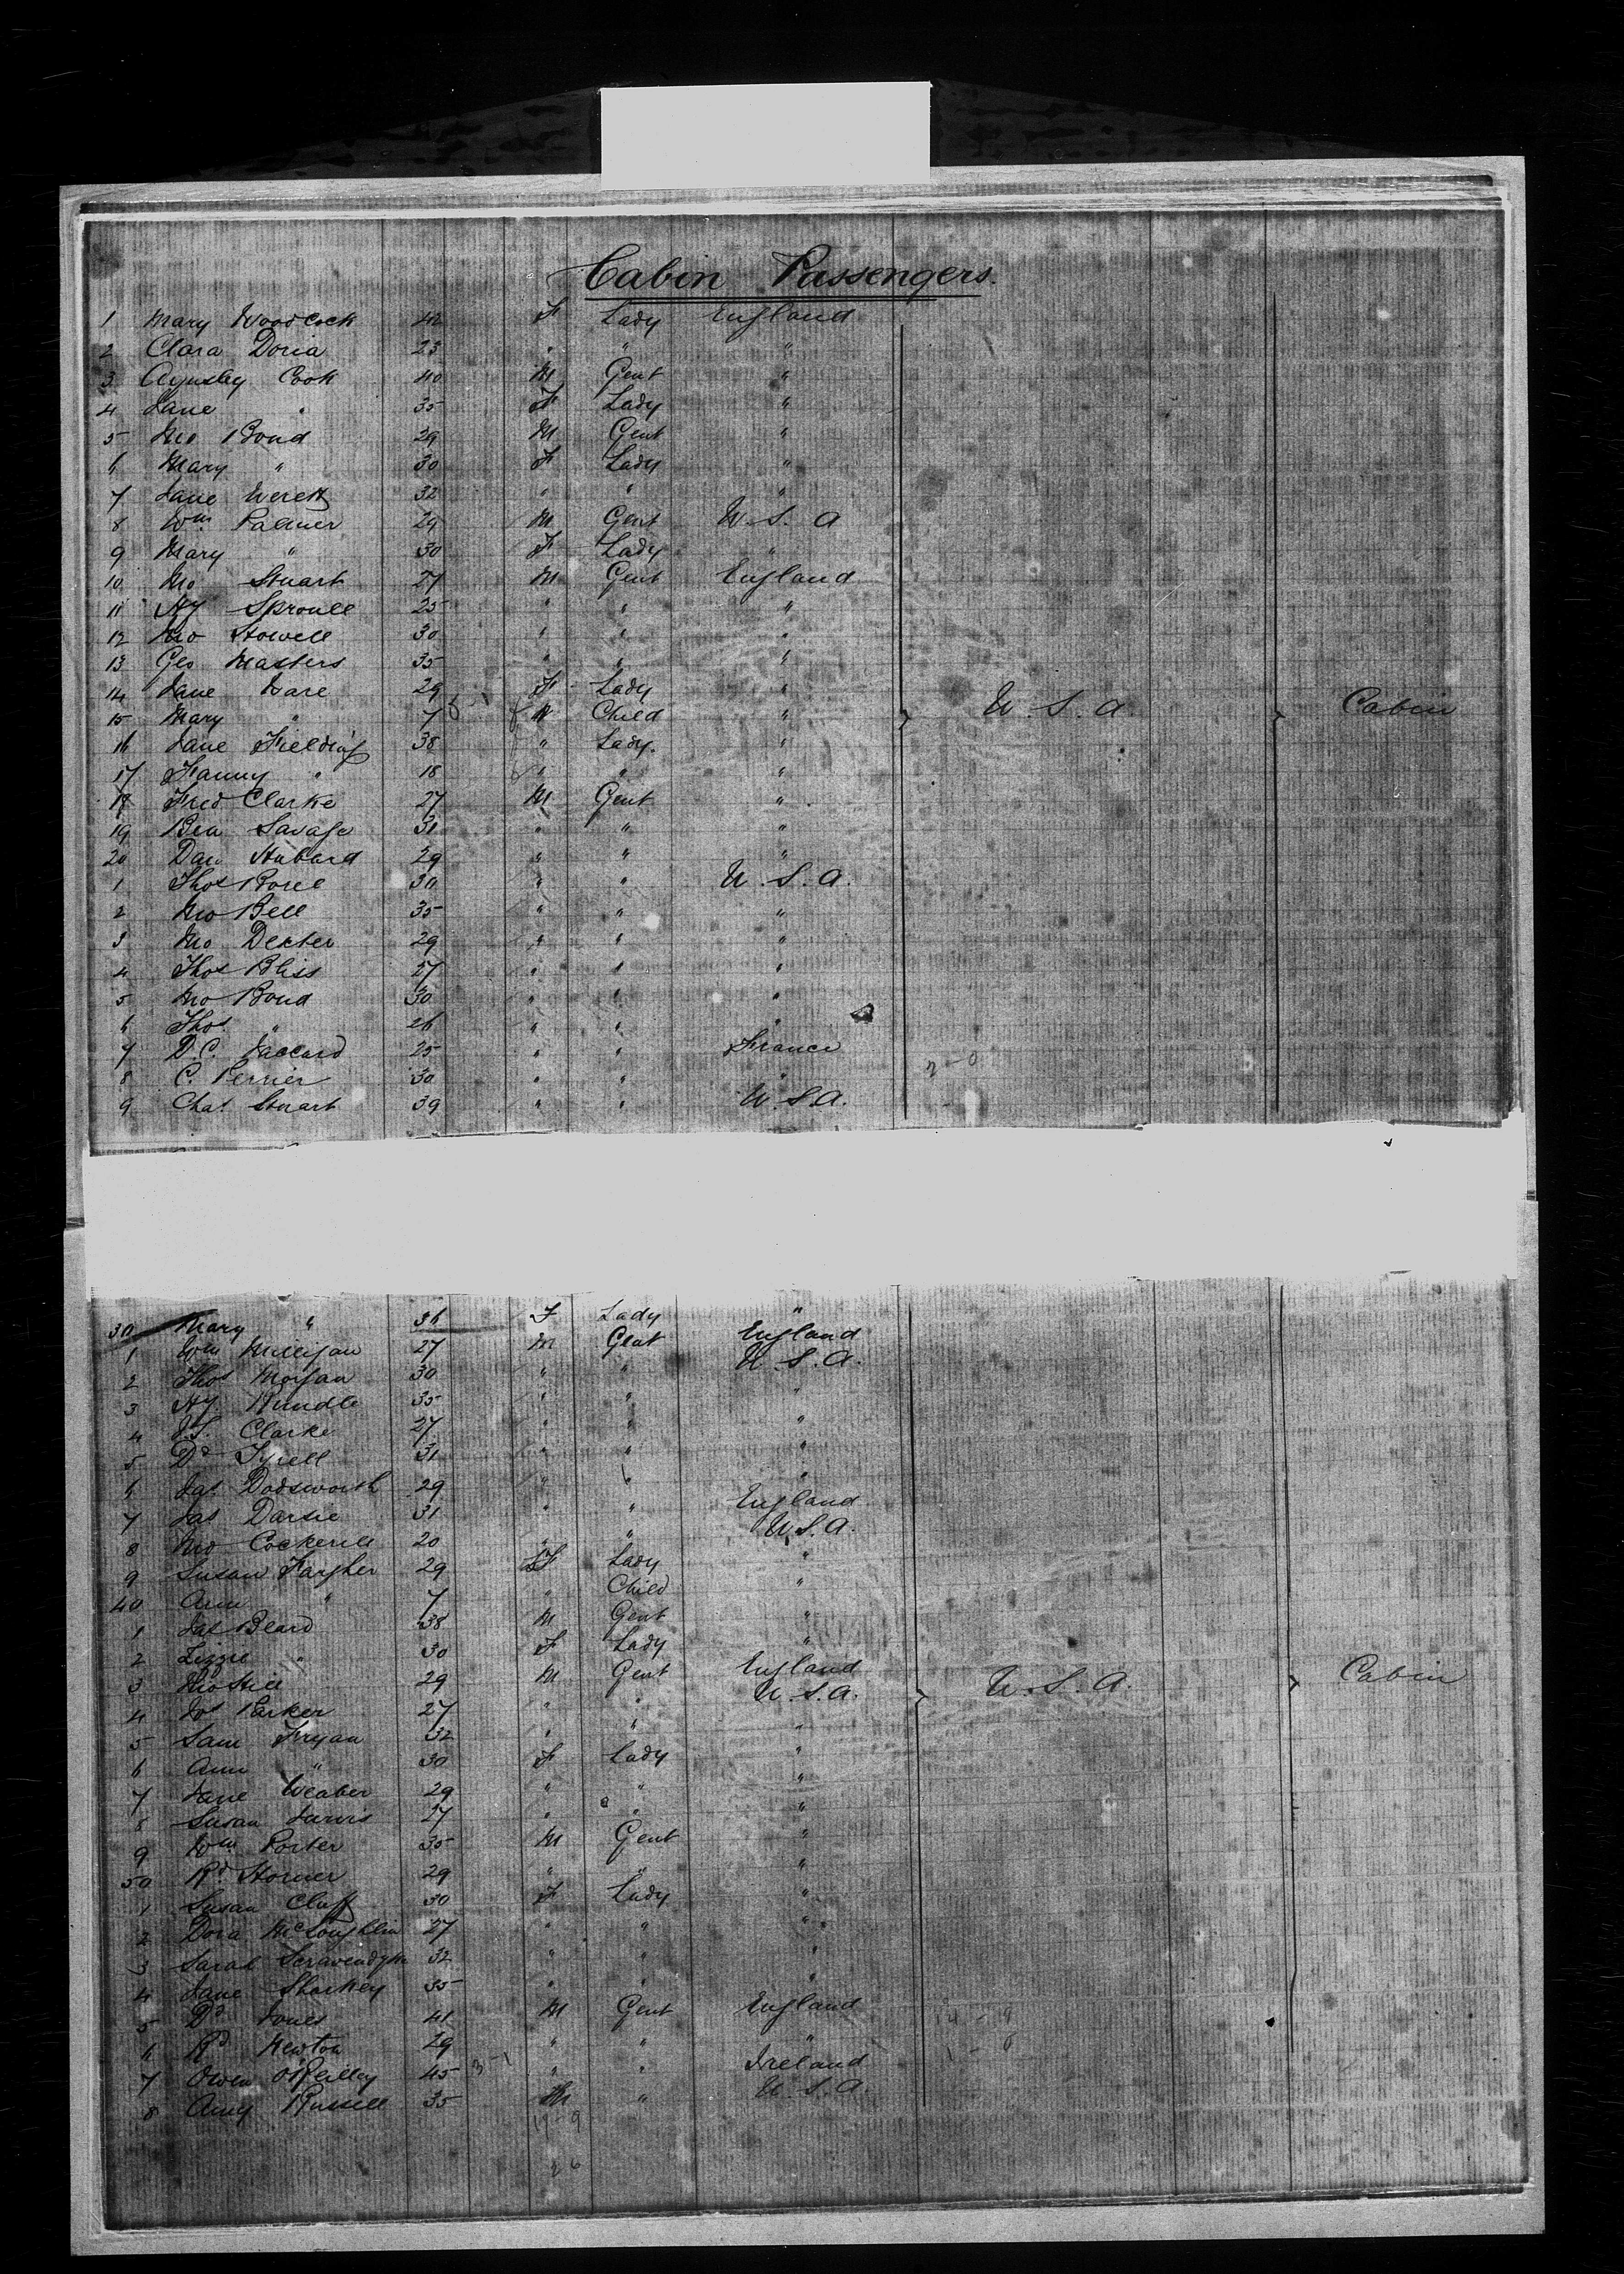 Cabin Passengers.
1 Mary Woodcock 42 F Lady England
2 Clara Doria 23 " " "
3 Aynsley Cook 40 M Gent "
4 Jane " 35 F Lady "
5 Jno Bond 29 M Gent "
6 Mary " 30 F Lady "
7 Jane 32 " " "
8 Wm Palmer 29 M Gent U.S.A
9 Mary " 30 F Lady "
10 Jno Stuart 27 M Gent England
11 Hy Sproule 25 " " "
12 Jno Howell 30 " " "
13 Geo Masters 35 " " "
14 Jane Dare 29 F Lady "
15 Mary " 7 Child " U.S.A. Cabin
16 Jane Fielding 38 " Lady. "
17 Fanny " 18 " " "
18 Fred Clarke 27 M Gent "
19 Ben Savage 31 " " "
20 Dan Hubard 29 " " "
1 Thos 30 " " U.S.A.
2 Jno Bell 35 " " "
3 Jno Dexter 29 " " "
4 Thos Bliss 27 " " "
5 Jno Bond 30 " " "
6 Thos " 26 " " "
7 D.C. Jaccard 25 " " France
8 C. Perrier 30 " " "
9 Chas Stuart 39 " " U.S.A.
30 Mary " 36 F Lady "
1 Wm Milligan 27 M Gent England
2 Thos Morgan 30 " " U.S.A.
3 Hy Rundle 35 " " "
4 Clarke 27 " " "
5 Dd Tyrell 31 " " "
6 Jas Dodsworth 29 " " "
7 Jas Darsie 31 " " England
8 Jno Cockerill 20 " " U.S.A.
9 Susan Fargher 29 F Lady "
40 Ann " 7 " Child "
1 Jas Beard 38 M Gent "
2 Lizzie " 30 F Lady "
3 Hill 29 M Gent England
4 Jos Parker 27 " " U.S.A. U.S.A. Cabin
5 Sam Fryan 32 " " "
6 Ann " 30 F Lady "
7 Jane Weaber 29 " " "
8 Susan Jarvis 27 " " "
9 Wm Porter 35 M Gent "
50 Rd Horner 29 " " "
1 Susan Cluff 30 F Lady "
2 Dora McLoughlin 27 " " "
3 Sarah 32 " " "
4 Jane Sharkey 35 " " "
5 Dd Jones 41 M Gent England
6 Rd Newton 29 " " "
7 Owen O'Reilley 45 " " Ireland
8 Amy Russell 35 M " U.S.A.